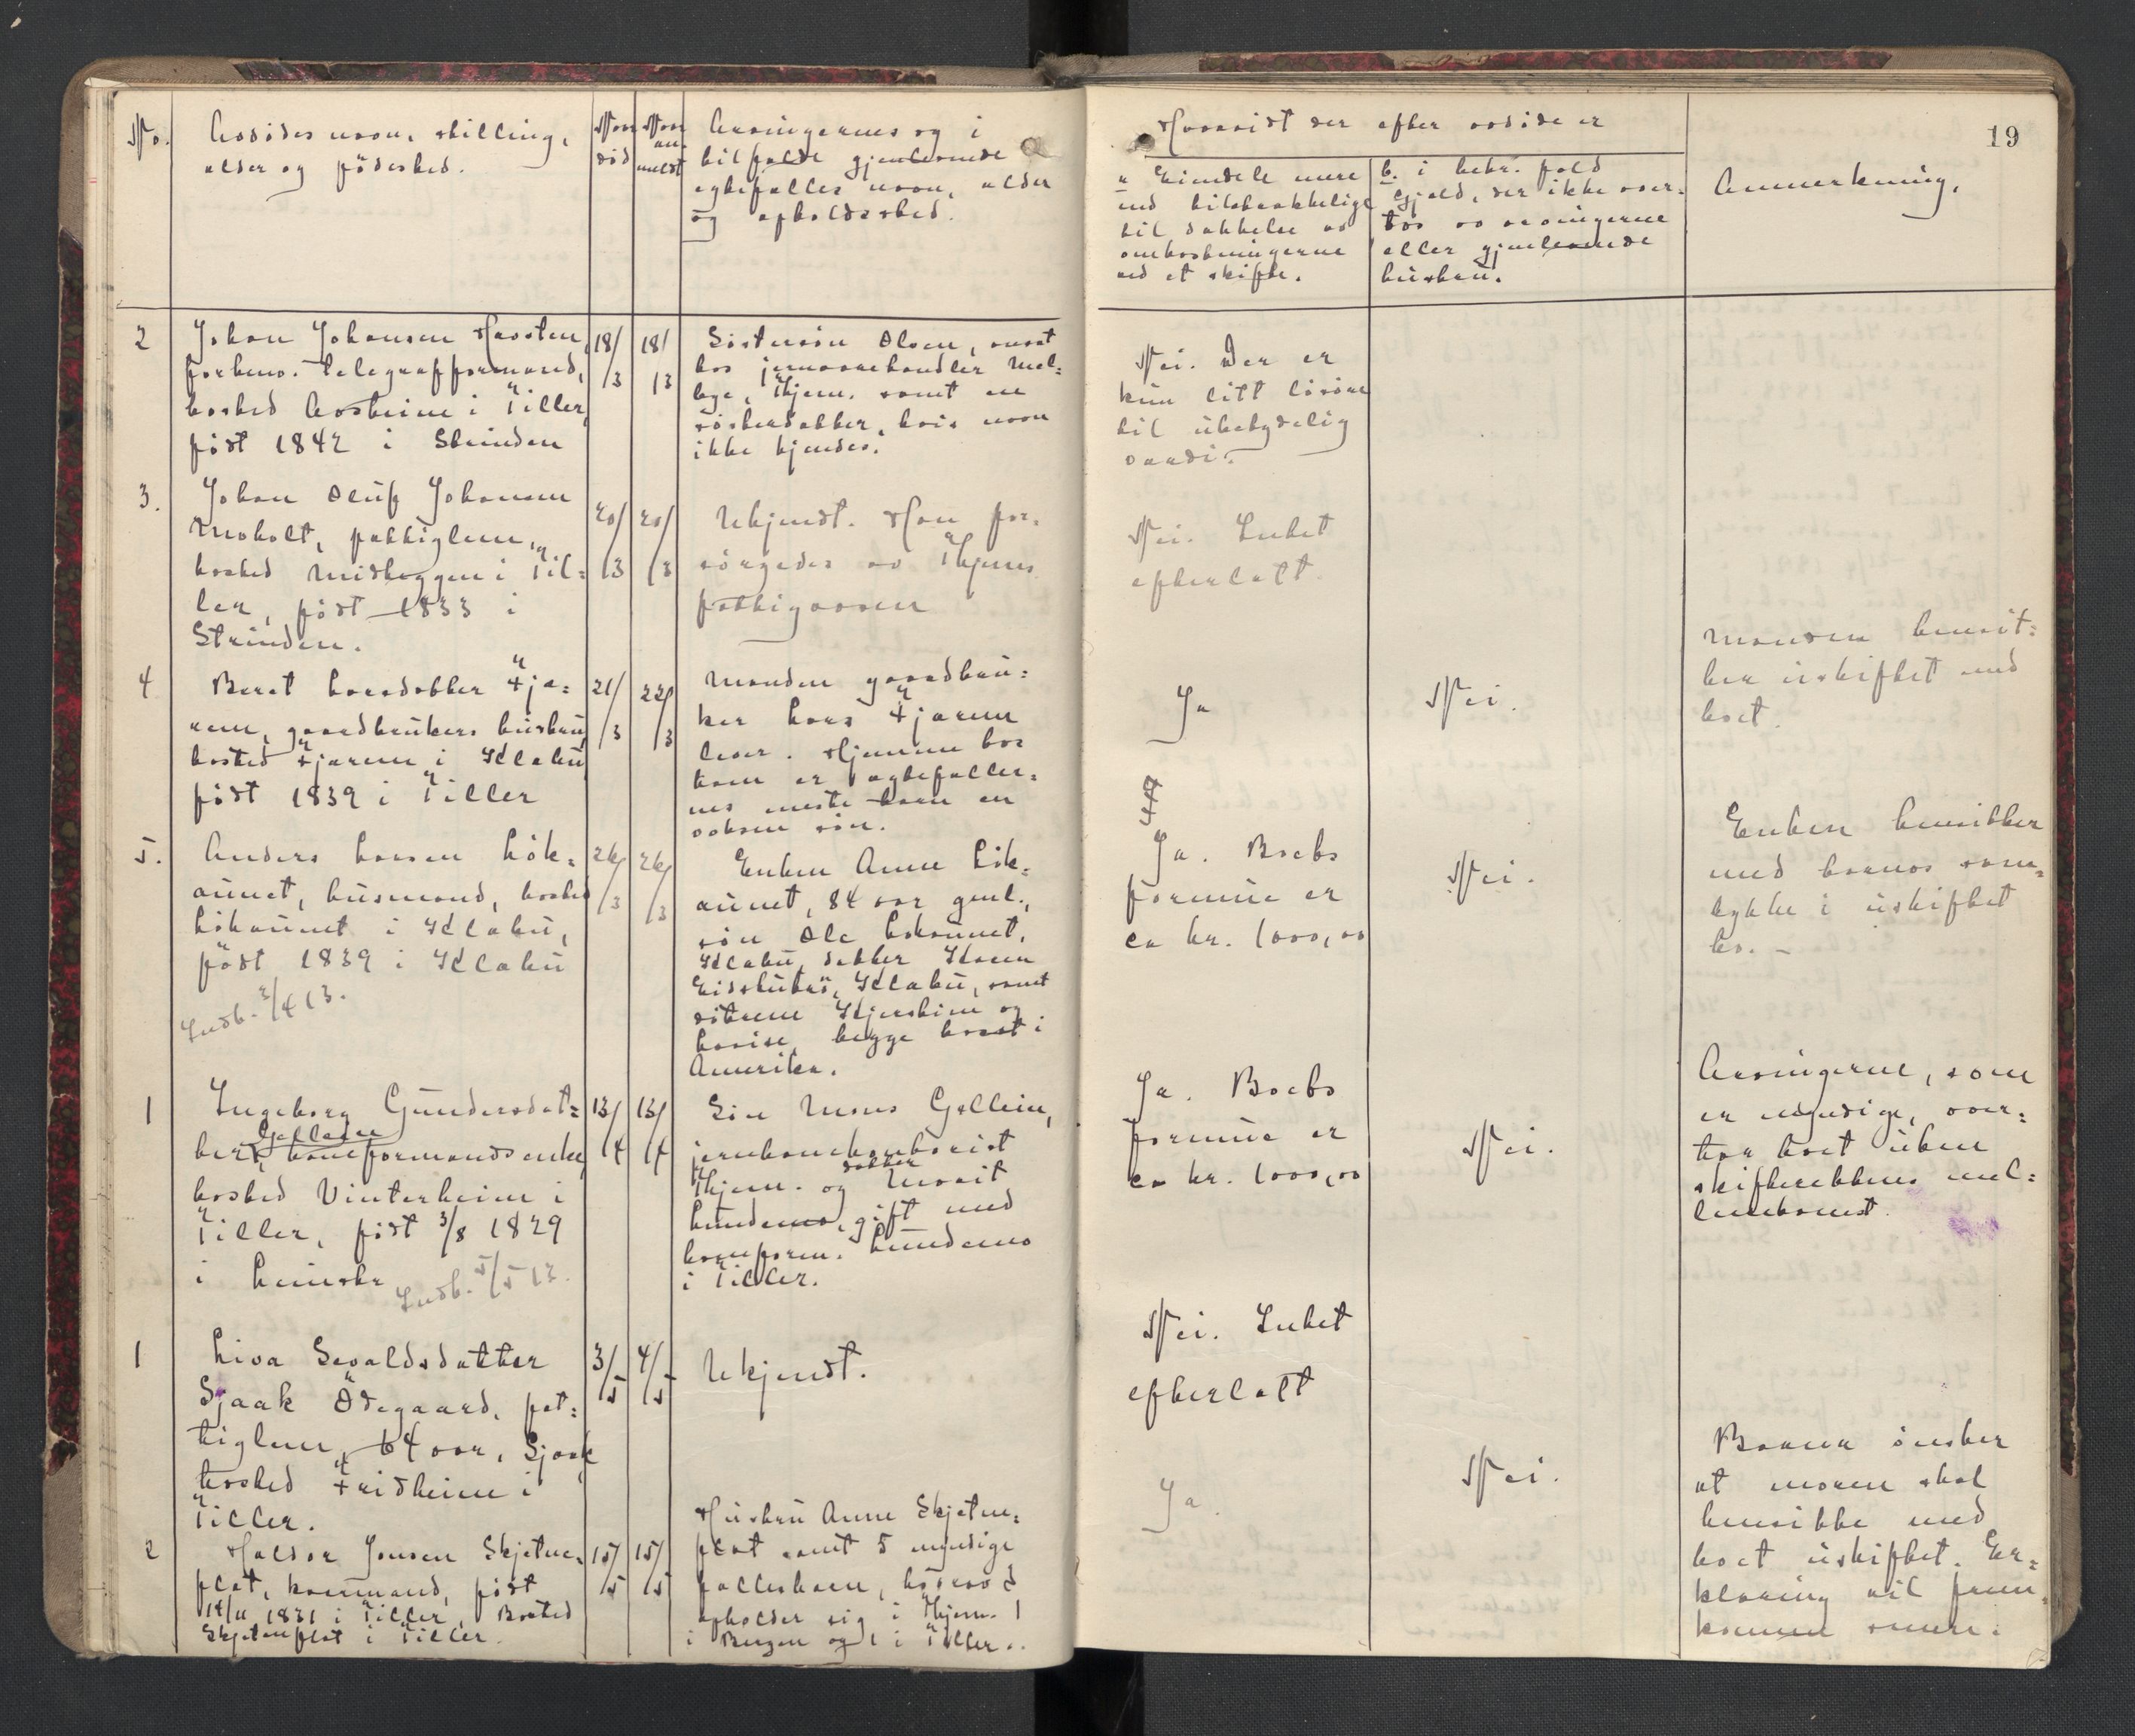 No.
Avdødes navn, stilling,
alder og fødested.
Naar
død
Naar
an-
meldt
Arvingernes og i
tilfælde gjenlevende
egtefælles navn, alder
og opholdssted.
Hvorvidt der efter avdøde er
a Eiendele mere
end tilstrækkelige
til dækkelse av
omkostningerne
ved et skifte.
b. i bekr. fald
Gjæld, der ikke over-
tas av arvingerne
eller gjenlevende
hustru.
Anmerkning.
19
2
Johan Johansen
forhenv. telegrafformand,
bosted Aasheim i Tiller
født 1842 i Strinden
18/3
18/3
Søstersøn Olsen, ansat
hos jernvarehandler Mel=
bye, Thjem. samt en
søsterdatter, hvis navn
ikke kjendes.
Nei. Der er
kun litt løsøre
til ubetydelig
værdi.
3.
Johan Oluf Johansen
Moholt, fattiglem,
bosted Midteggen i Til=
ler, født 1833 i
Strinden.
20/3
20/3
Ukjendt. Han for-
sørgedes av Thjems
fattigvæsen
Nei. Intet
efterlatt.
4
Beret Larsdatter Tja=
rem, gaardbrukers hustru
bosted Tjarem i Klæbu
født 1839 i Tiller
21/3
22/3
Manden gaardbru=
ker Lars Tjarem
lever. Hjemme hos
ham er egtefæller=
nes eneste barn en
voksen søn.
Ja
Nei.
Manden hensit=
ter uskiftet med
boet.
5.
Anders Larsen Løk=
aunet, husmand, bosted
Løkaunet i Klæbu,
født 1839 i Klæbu
Indb. 3/4 13.
26/3
26/3
Enken Anne Løk-
aunet, 84 aar gml.,
søn Ole Løkaunet,
Klæbu, datter
Klæbu, samt
døtrene og
Lovise, begge bosat i
Amerika.
Ja. Boets
formue er
ca kr. 1000,00
Nei.
Enken hensitter
med barnas sam=
tykke i uskiftet
bo. -
1
Ingeborg Gundersdat=
ter Gellein baneformands enke
bosted Vinterheim i
Tiller, født 3/8 1829
i Leinstr.
Indb. 5/5 13.
13/4
13/4
Søn Mons Gellein,
jernbanekontorist
Thjem. og datter Marit
Lundemo, gift med
baneform. Lundemo
i Tiller.
Ja. Boets
formue er
ca kr. 1000,00
Nei.
Arvingerne, som
er myndige, over=
tar boet uten
skifterettens mel=
lemkomst.
1
Liva Sevaldsdatter
Sjaak Ødegaard, fat=
tiglem, 64 aar, Sjaak
bosted Fridheim i
Tiller.
3/5
4/5
Ukjendt.
Nei. Intet
efterlatt
2
Haldor Jonsen Skjetne-
plat, kaarmand, født
14/11 1831 i Tiller, Bosted
Skjetneplat i Tiller.
15/5
15/5
Hustru Anne Skjetne=
plat samt 5 myndige
fællesbarn, hvorav 3
opholder sig i Thjem. 1
i Bergen og 1 i Tiller.
Ja.
Nei.
Barna ønsker
at moren skal
hensitte med
boet uskiftet. Er=
klæring vil frem-
komme senere.